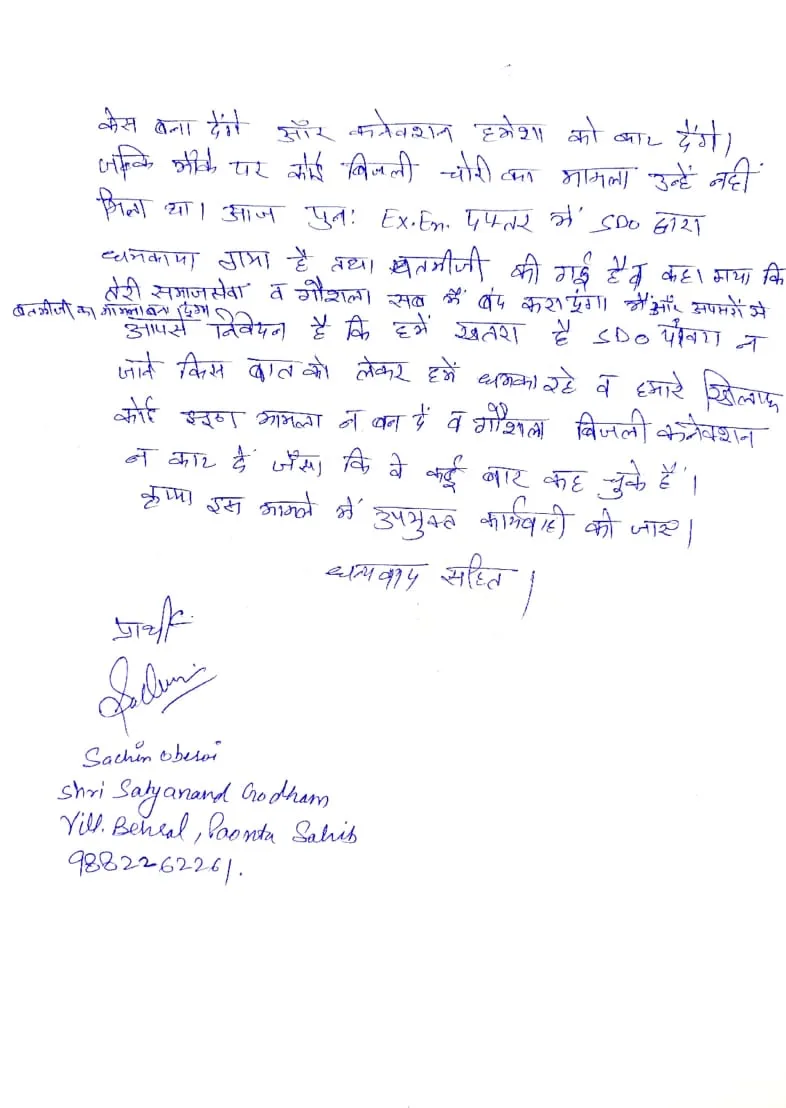 केस बना देंगे और कनेक्शन हमेशा को काट देंगे।
जबकि मौके पर कोई बिजली चोरी का मामला उन्हें नहीं
मिला था। आज पुनः Ex.En. दफ्तर में SDO द्वारा
धमकाया गया है तथा बतमीजी की गई है व कहा गया कि
तेरी समाजसेवा व गौशला सब मैं बंद करा दूंगा मैं और अपसरों से
बतमीजी का मामला बना दूंगा
आपसे निवेदन है कि हमें खतरा है SDO पांवटा न
जाने किस बात को लेकर हमें धमका रहे व हमारे खिलाफ
कोई झूठा मामला न बना दें व गौशला बिजली कनेक्शन
न काट दें जैसा कि वे कई बार कह चुके हैं।
कृप्या इस मामले में उपयुक्त कार्यवाही की जाए।
धन्यवाद सहित।
प्रार्थी
Sachin
Sachin Oberoi
Shri Satyanand Godham
Vill. Behral, Paonta Sahib
9882262261.